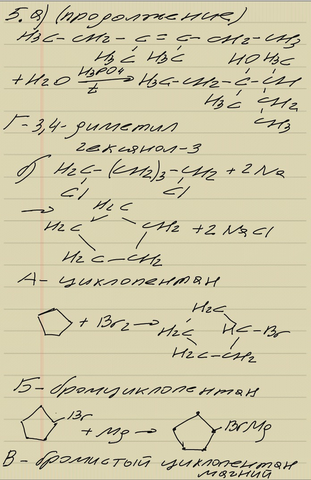 5. а) (продолжение)
H3C - CH2 - C = C - CH2 - CH3
H3C H3C HO H3C
+ H2O H3PO4 t → H3C - CH2 - C - CH
H3C CH2
CH3
Г - 3,4 - диметил
гексанол-3
б) H2C - (CH2)3 - CH2 + 2 Na
Cl Cl
→ H2C
H2C CH2 + 2 NaCl
H2C - CH2
А - циклопентан
+ Br2 → H2C
H2C HC - Br
H2C - CH2
Б - бромциклопентан
Br + Mg → BrMg
В - бромистый циклопентан
магний